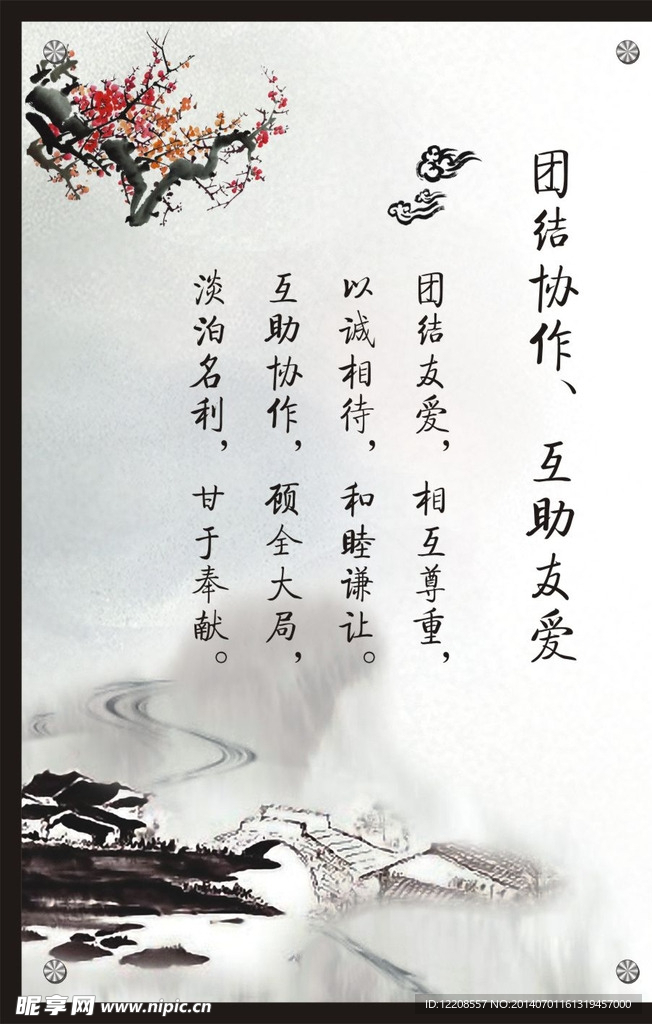 团结协作、互助友爱
团结友爱，相互尊重，
以诚相待，和睦谦让。
互助协作，顾全大局，
淡泊名利，甘于奉献。
昵享网 www.nipic.cn
ID:12208557 NO:20140701161319457000